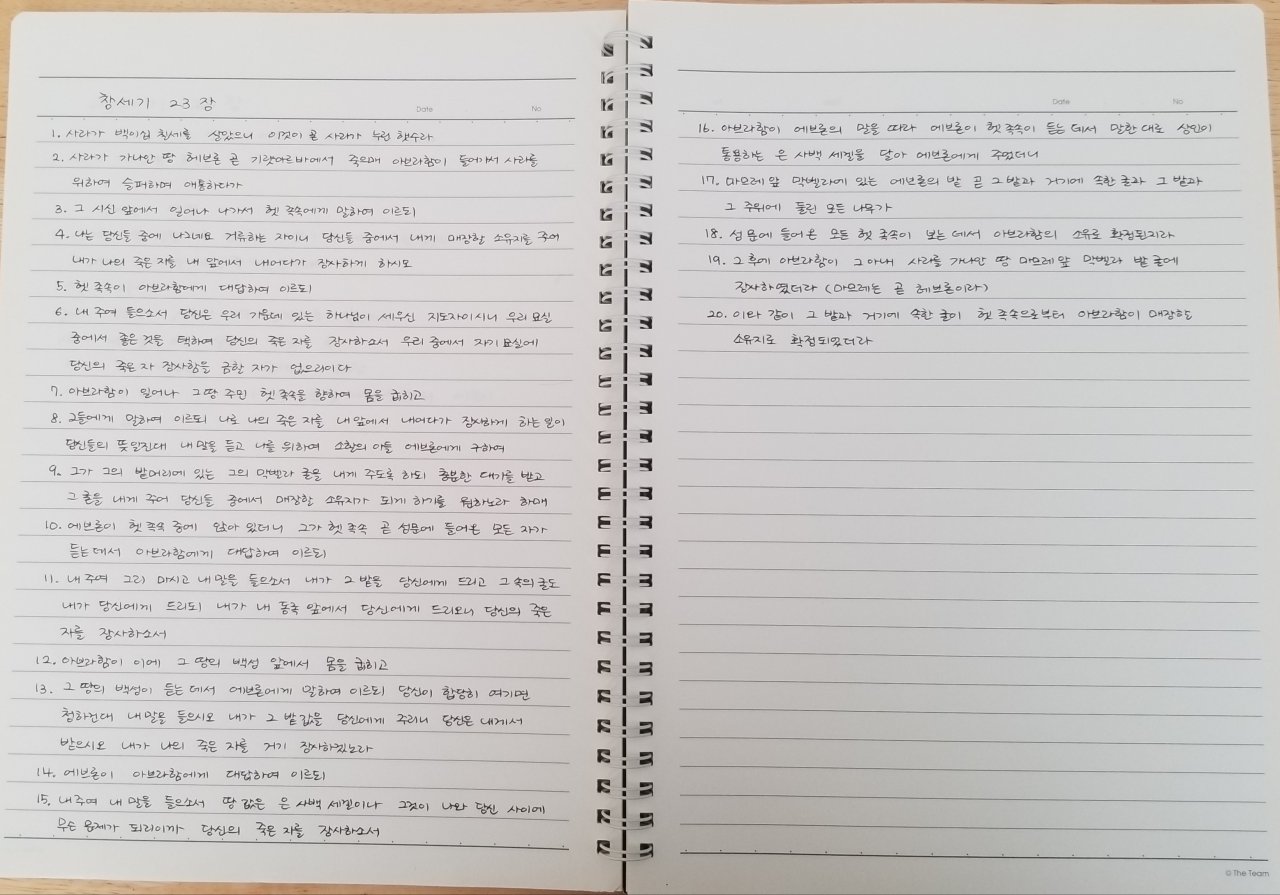 창세기 23장
Date No
1. 사라가 백이십 칠세를 살았으니 이것이 곧 사라가 누린 햇수라
2. 사라가 가나안 땅 헤브론 곧 기럇아르바에서 죽으매 아브라함이 들어가서 사라를
위하여 슬퍼하며 애통하다가
3. 그 시신 앞에서 일어나 나가서 헷 족속에게 말하여 이르되
4. 나는 당신들 중에 나그네요 거류하는 자이니 당신들 중에서 내게 매장할 소유지를 주어
내가 나의 죽은 자를 내 앞에서 내어다가 장사하게 하시오
5. 헷 족속이 아브라함에게 대답하여 이르되
6. 내 주여 들으소서 당신은 우리 가운데 있는 하나님이 세우신 지도자이시니 우리 묘실
중에서 좋은 것을 택하여 당신의 죽은 자를 장사하소서 우리 중에서 자기 묘실에
당신의 죽은 자 장사함을 금할 자가 없으리이다
7. 아브라함이 일어나 그 땅 주민 헷 족속을 향하여 몸을 굽히고
8. 그들에게 말하여 이르되 나로 나의 죽은 자를 내 앞에서 내어다가 장사하게 하는 일이
당신들의 뜻일진대 내 말을 듣고 나를 위하여 소할의 아들 에브론에게 구하여
9. 그가 그의 밭머리에 있는 그의 막벨라 굴을 내게 주도록 하되 충분한 대가를 받고
그 굴을 내게 주어 당신들 중에서 매장할 소유지가 되게 하기를 원하노라 하매
10. 에브론이 헷 족속 중에 앉아 있더니 그가 헷 족속 곧 성문에 들어온 모든 자가
듣는데서 아브라함에게 대답하여 이르되
11. 내 주여 그리 마시고 내 말을 들으소서 내가 그 밭을 당신에게 드리고 그 속의 굴도
내가 당신에게 드리되 내가 내 동족 앞에서 당신에게 드리오니 당신의 죽은
자를 장사하소서
12. 아브라함이 이에 그 땅의 백성 앞에서 몸을 굽히고
13. 그 땅의 백성이 듣는 데서 에브론에게 말하여 이르되 당신이 합당히 여기면
청하건대 내 말을 들으시오 내가 그 밭 값을 당신에게 주리니 당신은 내게서
받으시오 내가 나의 죽은 자를 거기 장사하겠노라
14. 에브론이 아브라함에게 대답하여 이르되
15. 내 주여 내 말을 들으소서 땅 값은 은 사백 세겔이나 그것이 나와 당신 사이에
무슨 문제가 되리이까 당신의 죽은 자를 장사하소서
Date No
16. 아브라함이 에브론의 말을 따라 에브론이 헷 족속이 듣는 데서 말한 대로 상인이
통용하는 은 사백 세겔을 달아 에브론에게 주었더니
17. 마므레 앞 막벨라에 있는 에브론의 밭 곧 그 밭과 거기에 속한 굴과 그 밭과
그 주위에 둘린 모든 나무가
18. 성 문에 들어온 모든 헷 족속이 보는 데서 아브라함의 소유로 확정된지라
19. 그 후에 아브라함이 그 아내 사라를 가나안 땅 마므레 앞 막벨라 밭 굴에
장사하였더라 (마므레는 곧 헤브론이라)
20. 이와 같이 그 밭과 거기에 속한 굴이 헷 족속으로부터 아브라함이 매장할
소유지로 확정되었더라
© The Team